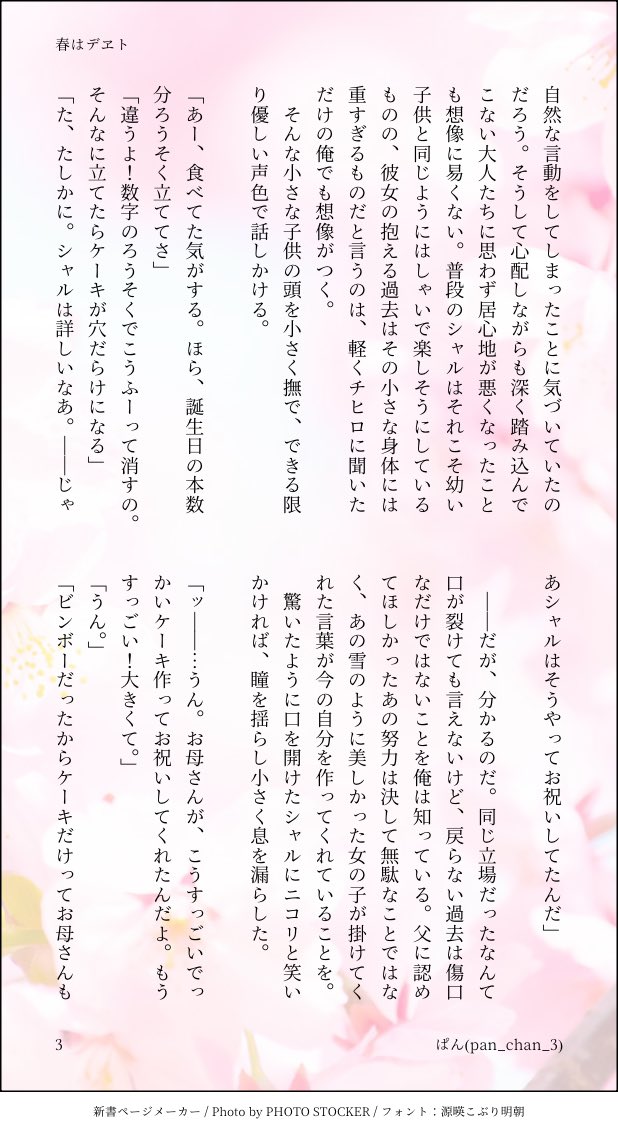 春はデヱト
自然な言動をしてしまったことに気づいていたの
だろう。そうして心配しながらも深く踏み込んで
こない大人たちに思わず居心地が悪くなったこと
も想像に易くない。普段のシャルはそれこそ幼い
子供と同じようにはしゃいで楽しそうにしている
ものの、彼女の抱える過去はその小さな身体には
重すぎるものだと言うのは、軽くチヒロに聞いた
だけの俺でも想像がつく。
　そんな小さな子供の頭を小さく撫で、できる限
り優しい声色で話しかける。
「あー、食べてた気がする。ほら、誕生日の本数
分ろうそく立ててさ」
「違うよ！数字のろうそくでこうふーって消すの。
そんなに立てたらケーキが穴だらけになる」
「た、たしかに。シャルは詳しいなあ。――じゃ
あシャルはそうやってお祝いしてたんだ」
　――だが、分かるのだ。同じ立場だったなんて
口が裂けても言えないけど、戻らない過去は傷口
なだけではないことを俺は知っている。父に認め
てほしかったあの努力は決して無駄なことではな
く、あの雪のように美しかった女の子が掛けてく
れた言葉が今の自分を作ってくれていることを。
　驚いたように口を開けたシャルにニコリと笑い
かければ、瞳を揺らし小さく息を漏らした。
「ッ――…うん。お母さんが、こうすっごいでっ
かいケーキ作ってお祝いしてくれたんだよ。もう
すっごい！大きくて。」
「うん。」
「ビンボーだったからケーキだけってお母さんも
3
ぱん(pan_chan_3)
新書ページメーカー / Photo by PHOTO STOCKER / フォント：源暎こぶり明朝